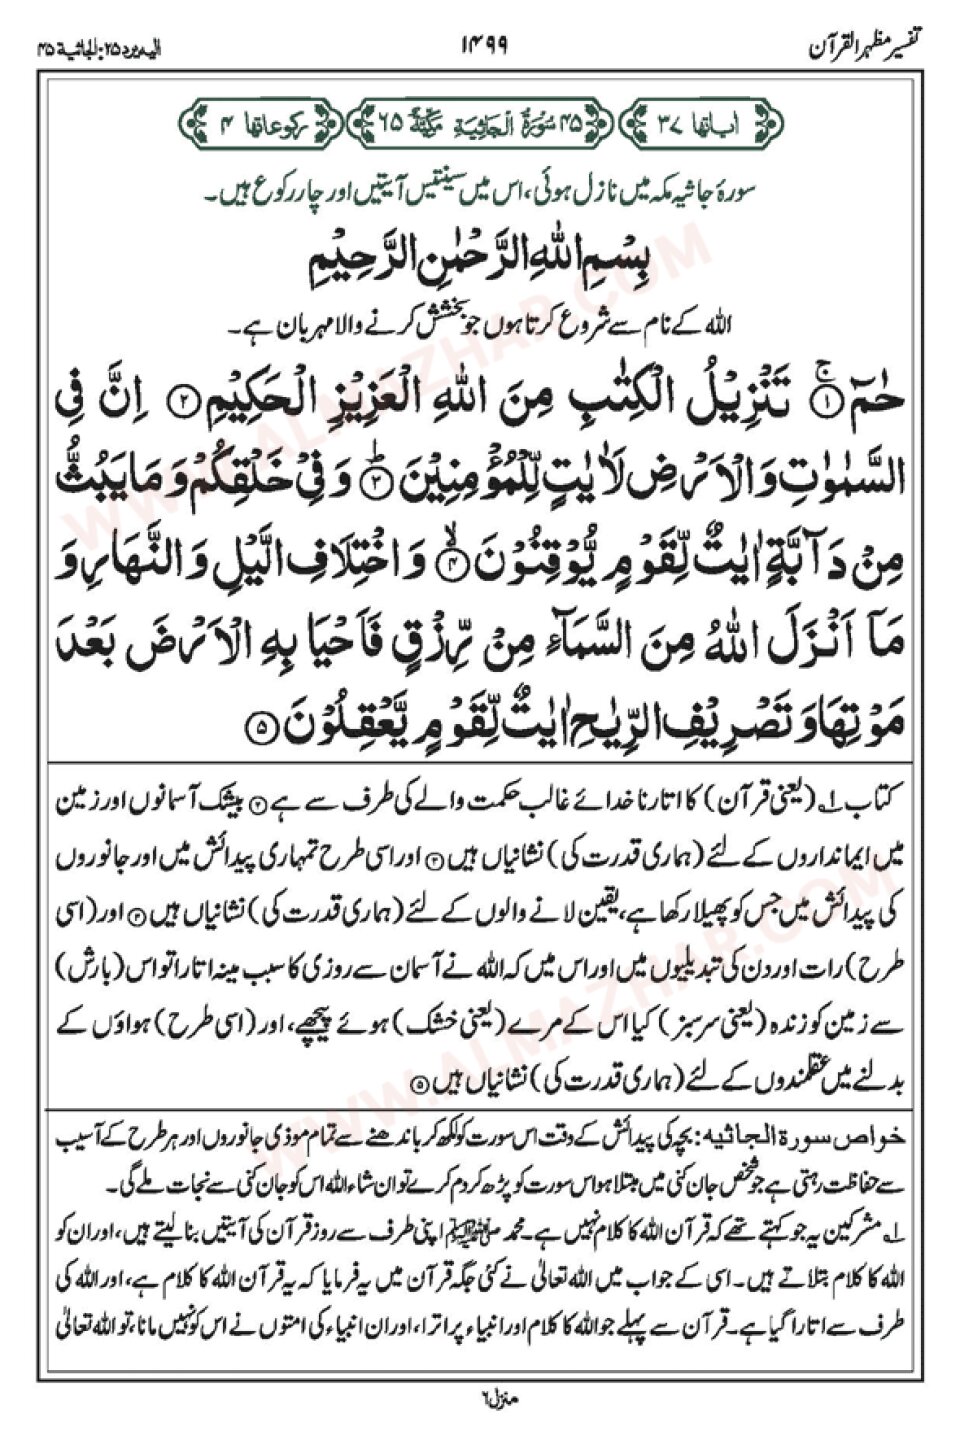 تفسیر مظہر القرآن
۱۴۹۹
الیہ یرد ۲۵: الجاثیة ۴۵
اٰیاتھا ۳۷
۴۵ سُوْرَةُ الْجَاثِيَةِ مَكِّيَّةٌ ۶۵
رکوعاتھا ۴
سورۂ جاثیہ مکہ میں نازل ہوئی، اس میں سینتیس آیتیں اور چار رکوع ہیں۔
بِسْمِ اللّٰهِ الرَّحْمٰنِ الرَّحِيْمِ
اللہ کے نام سے شروع کرتا ہوں جو بخشش کرنے والا مہربان ہے۔
حٰمٓ ۚ﴿۱﴾ تَنْزِيْلُ الْكِتٰبِ مِنَ اللّٰهِ الْعَزِيْزِ الْحَكِيْمِ ﴿۲﴾ اِنَّ فِى
السَّمٰوٰتِ وَالْاَرْضِ لَاٰيٰتٍ لِّلْمُؤْمِنِيْنَ ؕ﴿۳﴾ وَفِىْ خَلْقِكُمْ وَمَا يَبُثُّ
مِنْ دَآبَّةٍ اٰيٰتٌ لِّقَوْمٍ يُّوْقِنُوْنَ ۙ﴿۴﴾ وَاخْتِلَافِ الَّيْلِ وَالنَّهَارِ وَ
مَآ اَنْزَلَ اللّٰهُ مِنَ السَّمَآءِ مِنْ رِّزْقٍ فَاَحْيَا بِهِ الْاَرْضَ بَعْدَ
مَوْتِهَا وَتَصْرِيْفِ الرِّيٰحِ اٰيٰتٌ لِّقَوْمٍ يَّعْقِلُوْنَ ﴿۵﴾
کتاب ۱؎ (یعنی قرآن) کا اتارنا خدائے غالب حکمت والے کی طرف سے ہے ﴿۲﴾ بیشک آسمانوں اور زمین
میں ایمانداروں کے لئے (ہماری قدرت کی) نشانیاں ہیں ﴿۳﴾ اور اسی طرح تمہاری پیدائش میں اور جانوروں
کی پیدائش میں جس کو پھیلا رکھا ہے، یقین لانے والوں کے لئے (ہماری قدرت کی) نشانیاں ہیں ﴿۴﴾ اور (اسی
طرح) رات اور دن کی تبدیلیوں میں اور اس میں کہ اللہ نے آسمان سے روزی کا سبب مینہ اتارا تو اس (بارش)
سے زمین کو زندہ (یعنی سرسبز) کیا اس کے مرے (یعنی خشک) ہوئے پیچھے، اور (اسی طرح) ہواؤں کے
بدلنے میں عقلمندوں کے لئے (ہماری قدرت کی) نشانیاں ہیں ﴿۵﴾
خواص سورة الجاثیہ: بچہ کی پیدائش کے وقت اس سورت کو لکھ کر باندھنے سے تمام موذی جانوروں اور ہر طرح کے آسیب
سے حفاظت رہتی ہے جو شخص جان کنی میں مبتلا ہو اس سورت کو پڑھ کر دم کرے تو ان شاء اللہ اس کو جان کنی سے نجات ملے گی۔
۱؎ مشرکین یہ جو کہتے تھے کہ قرآن اللہ کا کلام نہیں ہے۔ محمد ﷺ اپنی طرف سے روز قرآن کی آیتیں بنا لیتے ہیں، اور ان کو
اللہ کا کلام بتلاتے ہیں۔ اسی کے جواب میں اللہ تعالیٰ نے کئی جگہ قرآن میں یہ فرمایا کہ یہ قرآن اللہ کا کلام ہے، اور اللہ کی
طرف سے اتارا گیا ہے۔ قرآن سے پہلے جو اللہ کا کلام اور انبیاء پر اترا، اور ان انبیاء کی امتوں نے اس کو نہیں مانا، تو اللہ تعالیٰ
منزل ۶
WWW.ALMAZHAR.COM
WWW.ALMAZHAR.COM